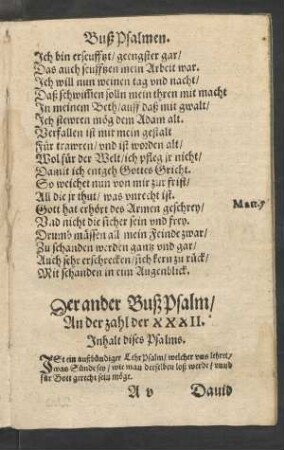 Buß Psalmen.
Ich bin erseufftzt/ geengster gar/
Das auch seufftzen mein Arbeit war.
Ich will nun weinen tag vnd nacht/
Daß schwim̃en solln mein thren mit macht
In meinem Beth/ auff daß mit gwalt/
Ich stewren mög dem Adam alt.
Verfallen ist mir mein gestalt
Für trawren/ vnd ist worden alt/
Wol für der Welt/ ich pfleg jr nicht/
Damit ich entgeh Gottes Gricht.
So weichet nun von mir zur frist/
All die jr thut/ was vnrecht ist.
Gott hat erhört des Armen geschrey/
Vnd nicht die sicher sein vnd frey.
Drumb müssen all mein Feinde zwar/
Zu schanden werden gantz vnd gar/
Auch sehr erschrecken/ sich kern zu rück/
Mit schanden in eim Augenblick.
Der ander Buß Psalm/
An der zahl der XXXII.
Inhalt dises Psalms.
ISt ein außbündiger Lehr Psalm/ welcher vns lehret/
was Sünde sey/ wie man derselben loß werde/ vnnd
für Gott gerecht sein möge.
A v David